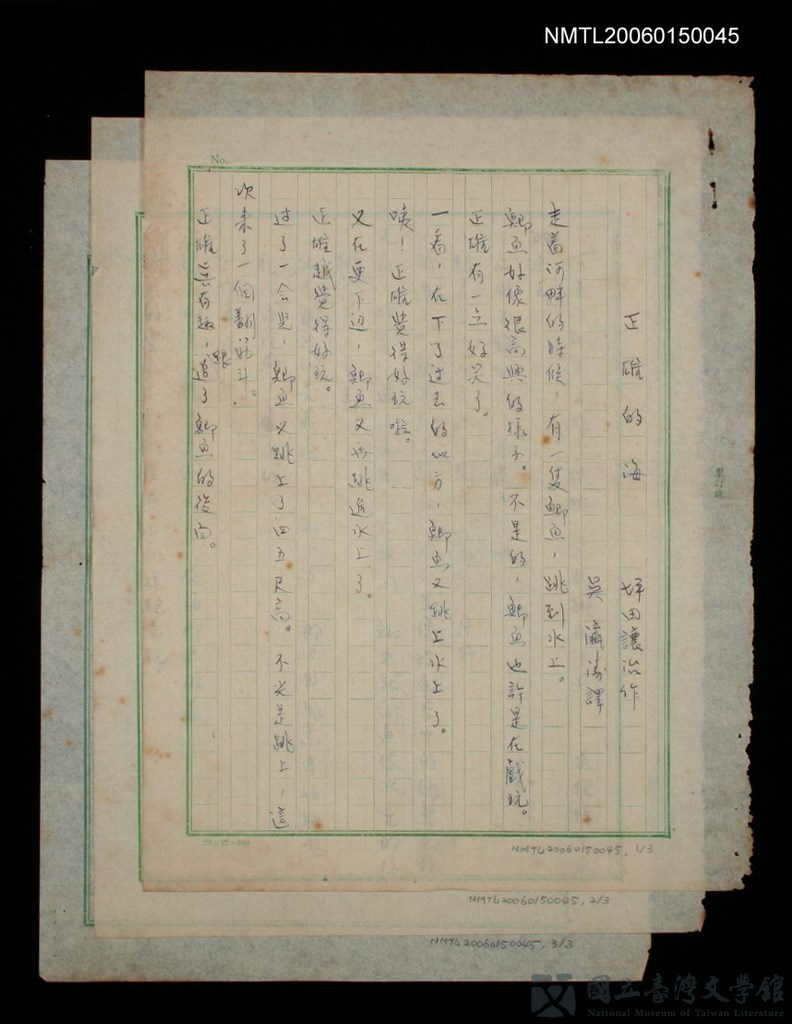 NMTL20060150045
No.
正雄的海　坪田讓治作
吳瀛濤譯
走着河畔的時候，有一隻鯽魚，跳到水上。
鯽魚好像很高興的樣子。不是的，鯽魚也許是在戲玩。
正雄有一点好笑了。
一看，在下了过去的地方，鯽魚又跳上水上了。
咦！正雄覺得好玩啦。
又在更下边，鯽魚又再跳進水上了。
正雄越覺得好玩。
过了一会兒，鯽魚又跳上了四五尺高。不光是跳上，這
次来了一個翻筋斗。
正雄真有趣，追了鯽魚的後面。
跟
NMTL20060150045, 1/3
NMTL20060150045, 2/3
NMTL20060150045, 3/3
國立臺灣文學館
National Museum of Taiwan Literature